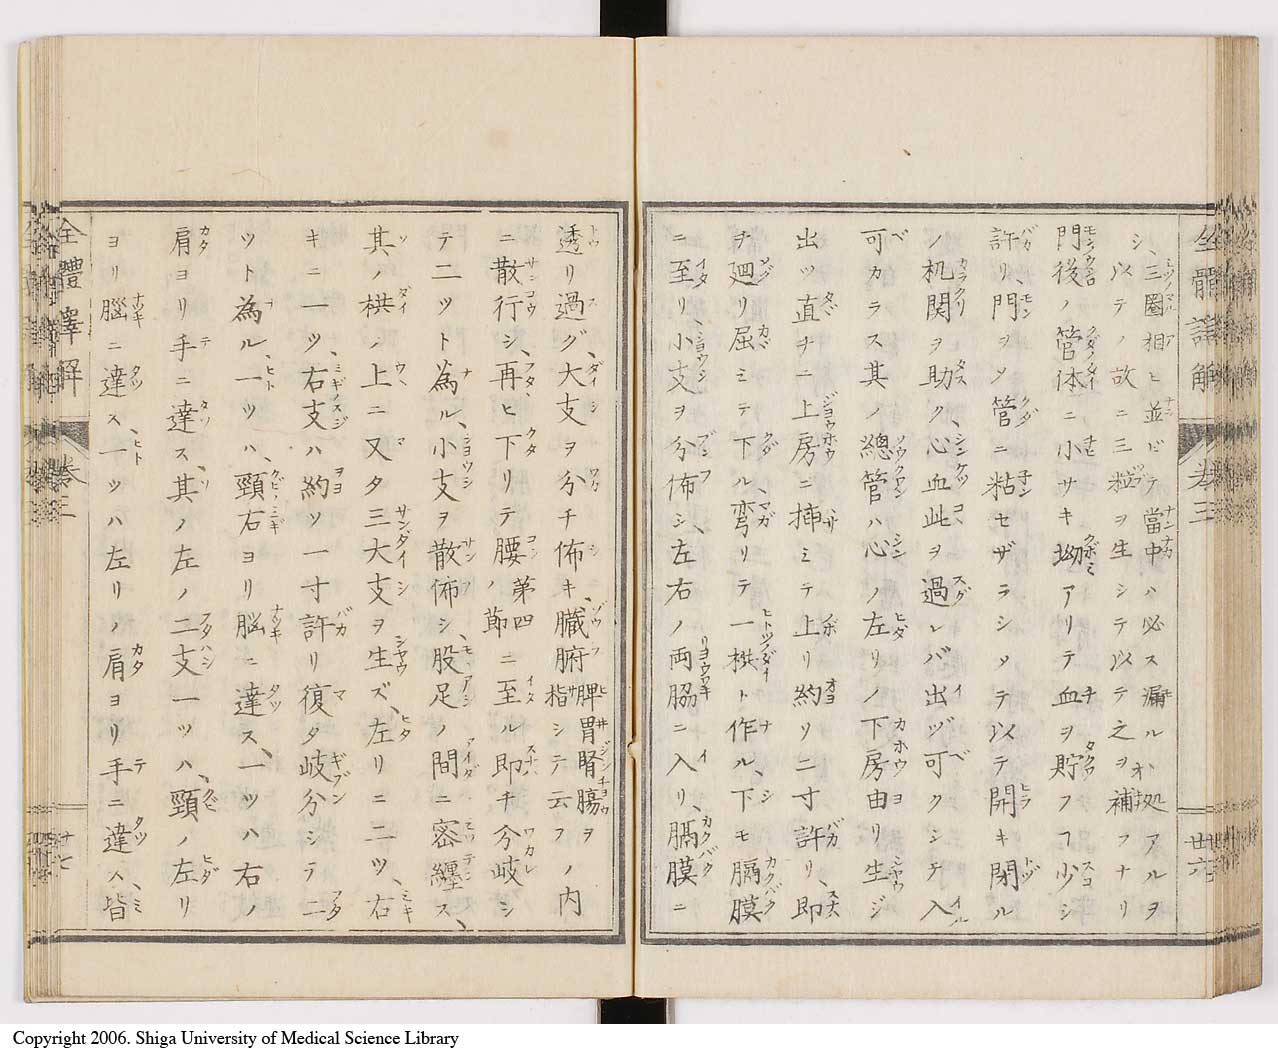 シ、三圏相ヒ並ビテ當中ハ必ス漏ルヽ処アルヲ
以テノ故ニ三粒ヲ生シテ以テ之ヲ補フナリ
門後ノ管体ニ小サキ坳アリテ血ヲ貯フコ少シ
許リ、門ヲソ管ニ粘セザラシメテ以テ開キ閉ル
ノ机関ヲ助ク心血此ヲ過レバ出ヅ可クシテ入
可カラス其ノ總管ハ心ノ左リノ下房由リ生ジ
出ツ直ヂニ上房ニ挿ミテ上リ約ソ二寸許リ、即
ヲ廻リ屈ミテ下ル、弯リテ一栱ト作ル、下モ膈膜
ニ至リ、小支ヲ分佈シ、左右ノ両脇ニ入リ、膈膜ニ
全體譯解
巻三
廿六
透リ過グ、大支ヲ分チ佈キ、臓腑脾胃腎腸ヲ指シテ云フノ内
ニ散行シ、再ヒ下リテ腰ノ第四節ニ至ル即チ分岐シ
テ二ツト為ル、小支ヲ散佈シ、股足ノ間ニ密纏ス、
其ノ栱ノ上ニ又タ三大支ヲ生ズ、左リニ二ツ、右
キニ一ツ、右支ハ約ソ一寸許リ復タ岐分シテ二
ツト為ル、一ツハ、頸右ヨリ脳ニ達ス、一ツハ右ノ
肩ヨリ手ニ達ス、其ノ左ノ二支一ツハ、頸ノ左リ
ヨリ脳ニ達ス、一ツハ左リノ肩ヨリ手ニ達ス、皆
全體譯解
巻三
廿七
Copyright 2006. Shiga University of Medical Science Library